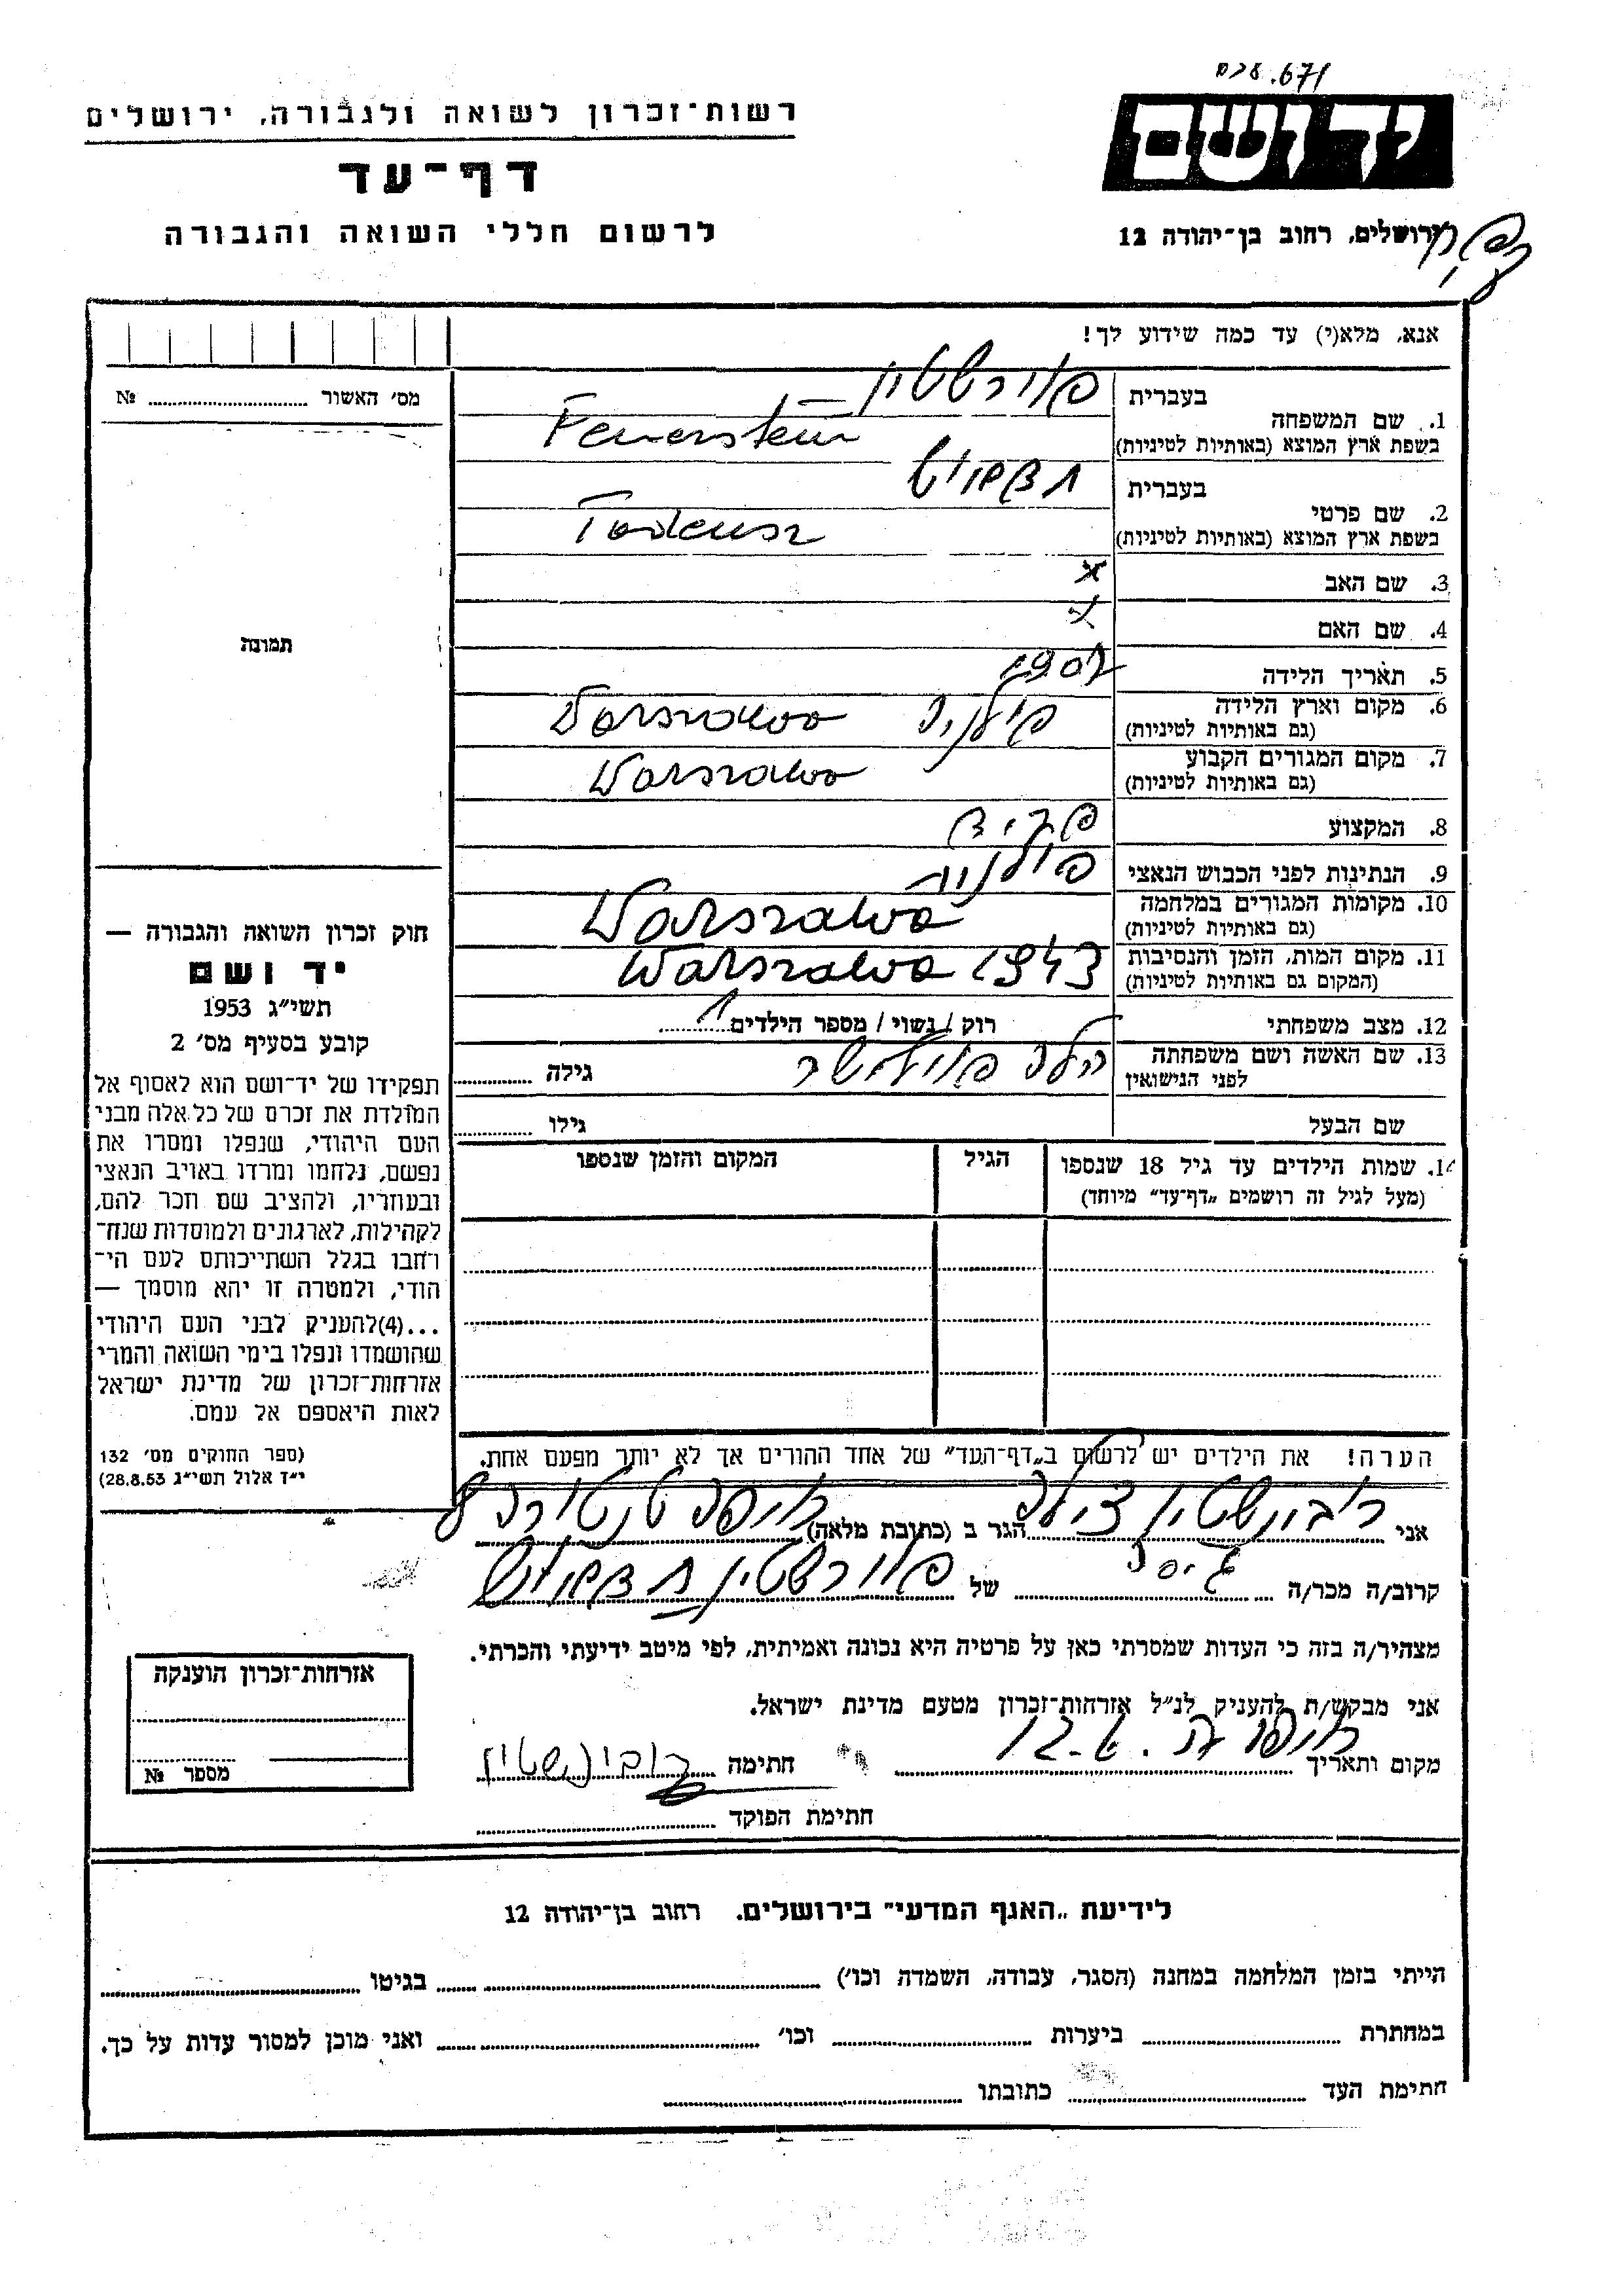 671
רשות־זכרון לשואה ולגבורה, ירושלים
ידושם
דף־עד
לרשום חללי השואה והגבורה
ירושלים, רחוב בן־יהודה 12
אנא, מלא(י) עד כמה שידוע לך!
מס׳ האשור № 
1. שם המשפחה
בעברית פוירשטיין
בשפת ארץ המוצא (באותיות לטיניות) Feuerstein
2. שם פרטי
בעברית
בשפת ארץ המוצא (באותיות לטיניות) Tadeusz
3. שם האב x
4. שם האם x
5. תאריך הלידה 1902
6. מקום וארץ הלידה (גם באותיות לטיניות) Warszawa
7. מקום המגורים הקבוע (גם באותיות לטיניות) Warszawa
8. המקצוע פקיד
9. הנתינות לפני הכבוש הנאצי פולנית
10. מקומות המגורים במלחמה (גם באותיות לטיניות) Warszawa
11. מקום המות, הזמן והנסיבות (המקום גם באותיות לטיניות) Warszawa 1943
12. מצב משפחתי רוק / נשוי / מספר הילדים 1
13. שם האשה ושם משפחתה לפני הנישואין
גילה
שם הבעל
גילו
14. שמות הילדים עד גיל 18 שנספו
(מעל לגיל זה רושמים „דף־עד״ מיוחד)
הגיל
המקום והזמן שנספו
הערה! את הילדים יש לרשום ב„דף־העד״ של אחד ההורים אך לא יותר מפעם אחת.
תמונה
חוק זכרון השואה והגבורה —
יד ושם
תשי״ג 1953
קובע בסעיף מס׳ 2
תפקידו של יד־ושם הוא לאסוף אל
המולדת את זכרם של כל אלה מבני
העם היהודי, שנפלו ומסרו את
נפשם, נלחמו ומרדו באויב הנאצי
ובעוזריו, ולהציב שם וזכר להם,
לקהילות, לארגונים ולמוסדות שנח־
רחבו בגלל השתייכותם לעם הי־
הודי, ולמטרה זו יהא מוסמך —
...(4)להעניק לבני העם היהודי
שהושמדו ונפלו בימי השואה והמרי
אזרחות־זכרון של מדינת ישראל
לאות היאספם אל עמם.
(ספר החוקים מס׳ 132
י״ד אלול תשי״ג 28.8.53)
אני רובינשטיין צילה הגר ב (כתובת מלאה) חיפה
קרוב/ה מכר/ה גיסה של פוירשטיין
מצהיר/ה בזה כי העדות שמסרתי כאן על פרטיה היא נכונה ואמיתית, לפי מיטב ידיעתי והכרתי.
אני מבקש/ת להעניק לנ״ל אזרחות־זכרון מטעם מדינת ישראל.
מקום ותאריך חיפה חתימה רובינשטיין
חתימת הפוקד
אזרחות־זכרון הוענקה
מספר №
לידיעת „האגף המדעי״ בירושלים. רחוב בן־יהודה 12
הייתי בזמן המלחמה במחנה (הסגר, עבודה, השמדה וכו׳) בגיטו
במחתרת ביערות וכו׳ ואני מוכן למסור עדות על כך.
חתימת העד כתובתו